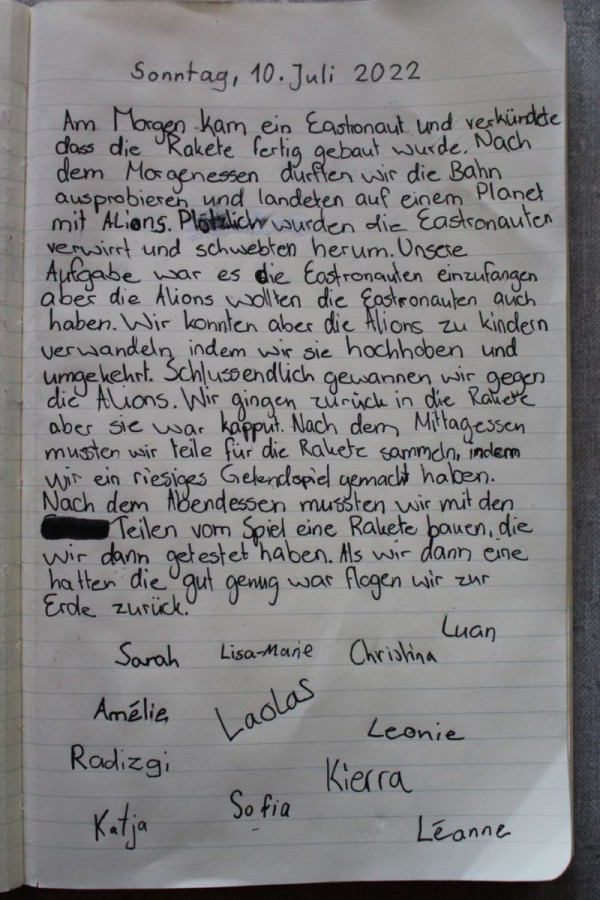 Sonntag, 10. Juli 2022
Am Morgen kam ein Eastronaut und verkündete
dass die Rakete fertig gebaut wurde. Nach
dem Morgenessen durften wir die Bahn
ausprobieren und landeten auf einem Planet
mit ALions. Plötzlich wurden die Eastronauten
verwirrt und schwebten herum. Unsere
Aufgabe war es die Eastronauten einzufangen
aber die Alions wollten die Eastronauten auch
haben. Wir konnten aber die Alions zu kindern
verwandeln indem wir sie hochhoben und
umgekehrt. Schlussendlich gewannen wir gegen
die Alions. Wir gingen zurück in die Rakete
aber sie war kapput. Nach dem Mittagessen
mussten wir teile für die Rakete sammeln, indem
wir ein riesiges Gelendspiel gemacht haben.
Nach dem Abendessen mussten wir mit den
Teilen vom Spiel eine Rakete bauen, die
wir dann getestet haben. Als wir dann eine
hatten die gut genug war flogen wir zur
Erde zurück.
Luan
Sarah Lisa-Marie Christina
Amélie Laolas Leonie
Radizgi Kierra
Katja Sofia Léanne